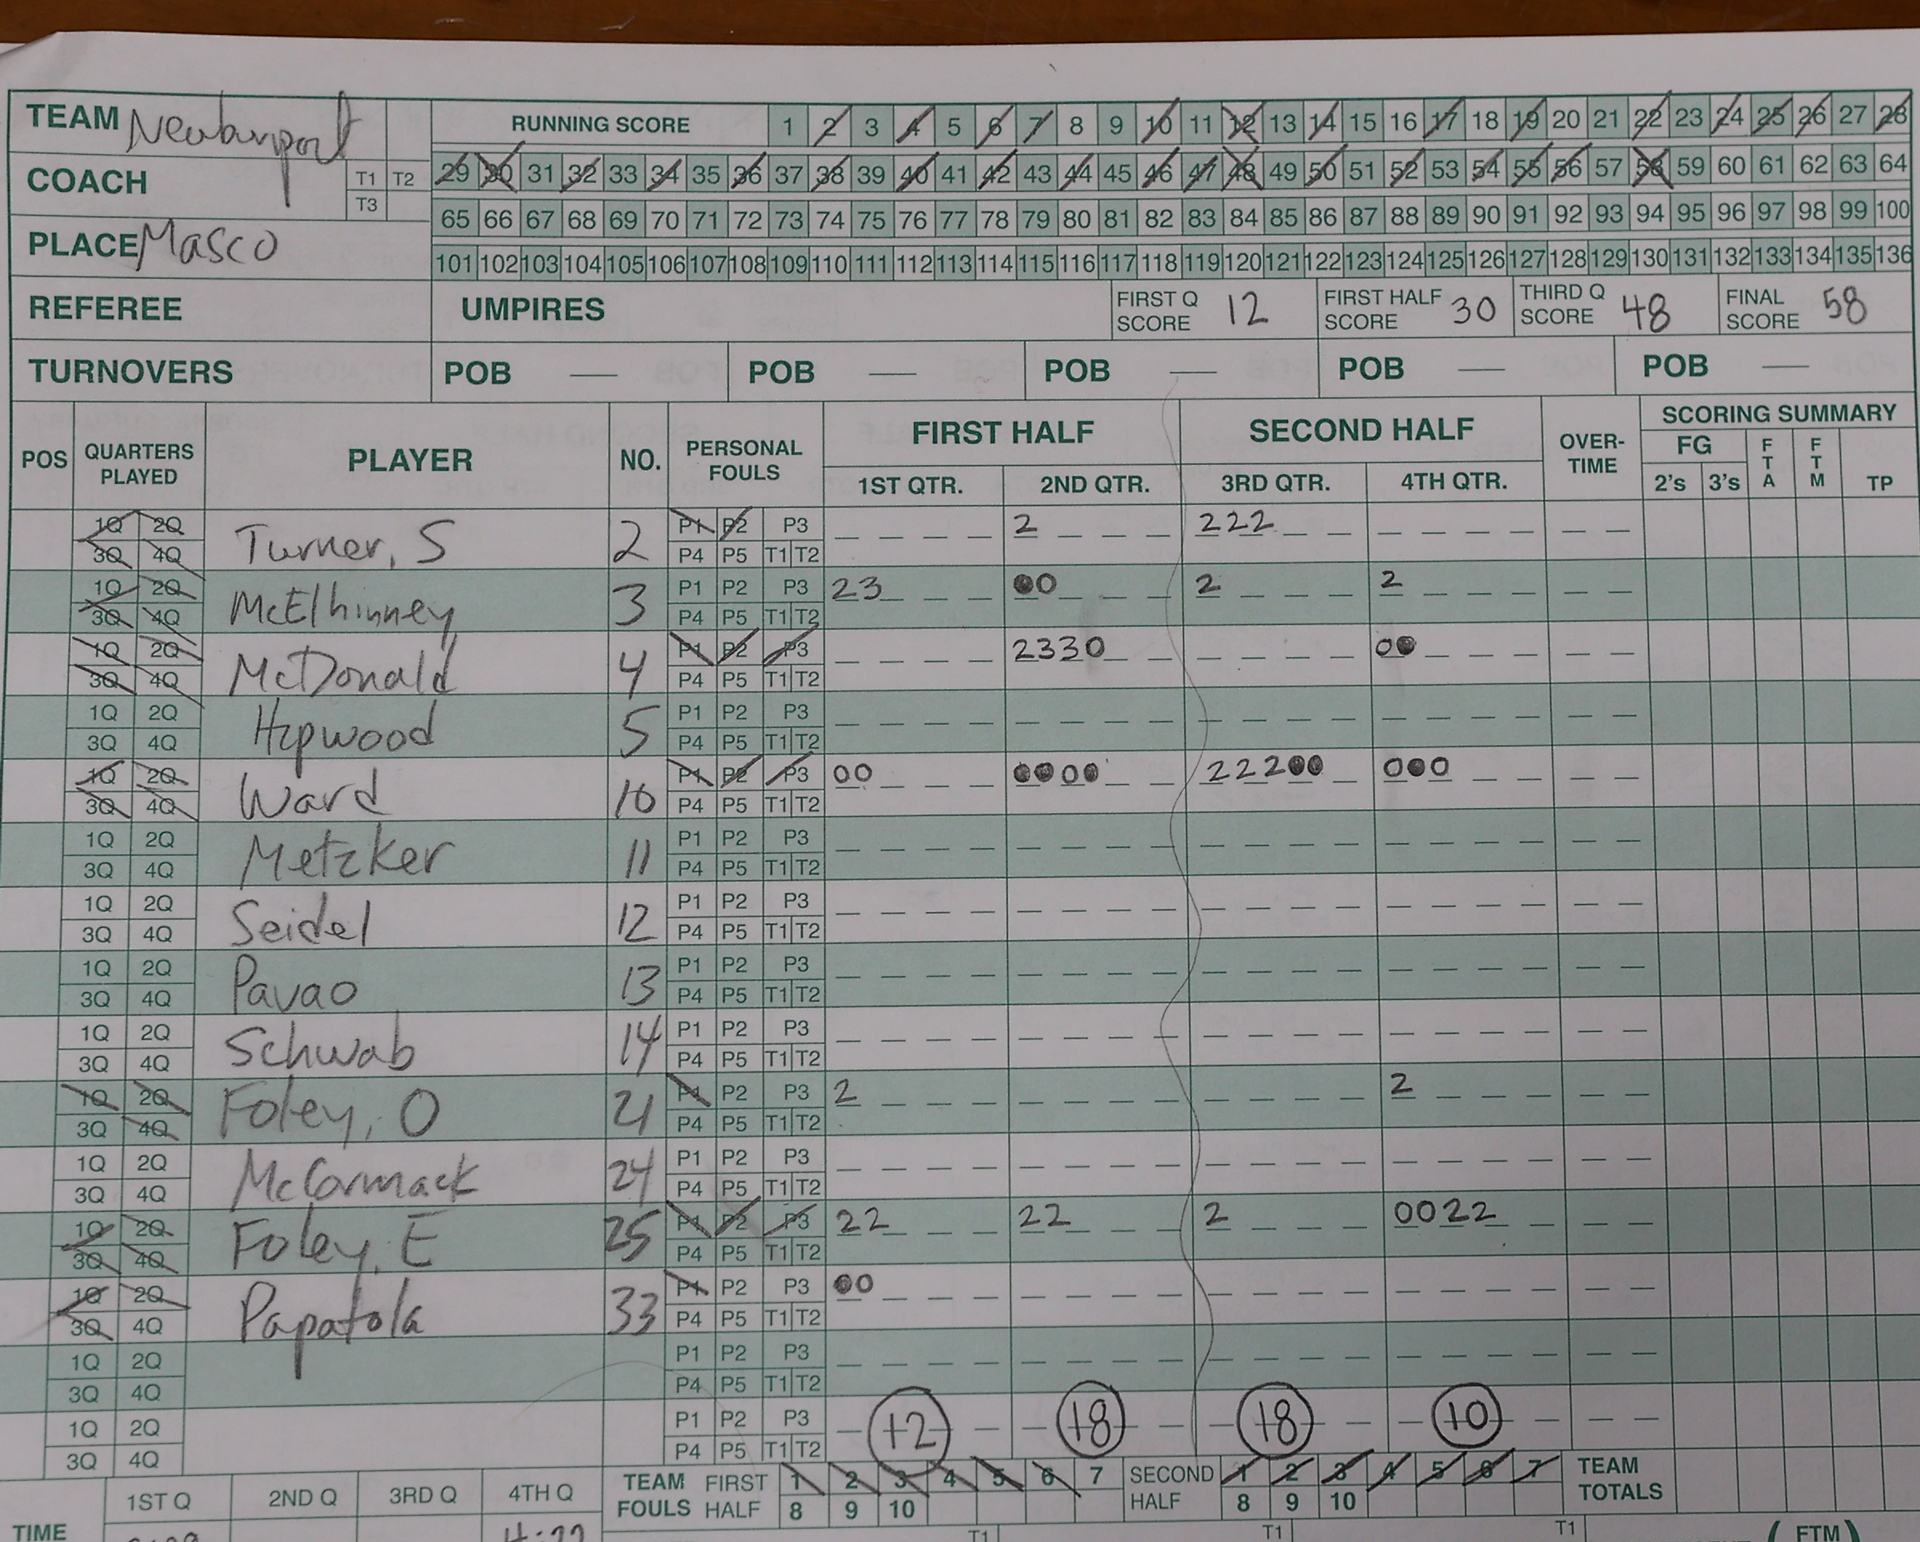 TEAM Newburyport RUNNING SCORE 1 2 3 4 5 6 7 8 9 10 11 12 13 14 15 16 17 18 19 20 21 22 23 24 25 26 27 28
COACH T1 T2 T3 29 30 31 32 33 34 35 36 37 38 39 40 41 42 43 44 45 46 47 48 49 50 51 52 53 54 55 56 57 58 59 60 61 62 63 64
65 66 67 68 69 70 71 72 73 74 75 76 77 78 79 80 81 82 83 84 85 86 87 88 89 90 91 92 93 94 95 96 97 98 99 100
PLACE Masco 101 102 103 104 105 106 107 108 109 110 111 112 113 114 115 116 117 118 119 120 121 122 123 124 125 126 127 128 129 130 131 132 133 134 135 136
REFEREE UMPIRES FIRST Q SCORE 12 FIRST HALF SCORE 30 THIRD Q SCORE 48 FINAL SCORE 58
TURNOVERS POB — POB — POB — POB — POB —
POS QUARTERS PLAYED PLAYER NO. PERSONAL FOULS FIRST HALF SECOND HALF OVER-TIME SCORING SUMMARY
1ST QTR. 2ND QTR. 3RD QTR. 4TH QTR. FG 2's 3's FTA FTM TP
1Q 2Q Turner, S 2 P1 P2 P3 2 222
3Q 4Q P4 P5 T1 T2
1Q 2Q McElhinney 3 P1 P2 P3 23 ●0 2 2
3Q 4Q P4 P5 T1 T2
1Q 2Q McDonald 4 P1 P2 P3 2330 0●
3Q 4Q P4 P5 T1 T2
1Q 2Q Hopwood 5 P1 P2 P3
3Q 4Q P4 P5 T1 T2
1Q 2Q Ward 10 P1 P2 P3 00 ●●0● 222●● 0●0
3Q 4Q P4 P5 T1 T2
1Q 2Q Metzker 11 P1 P2 P3
3Q 4Q P4 P5 T1 T2
1Q 2Q Seidel 12 P1 P2 P3
3Q 4Q P4 P5 T1 T2
1Q 2Q Pavao 13 P1 P2 P3
3Q 4Q P4 P5 T1 T2
1Q 2Q Schwab 14 P1 P2 P3
3Q 4Q P4 P5 T1 T2
1Q 2Q Foley, O 21 P1 P2 P3 2 2
3Q 4Q P4 P5 T1 T2
1Q 2Q McCormack 24 P1 P2 P3
3Q 4Q P4 P5 T1 T2
1Q 2Q Foley, E 25 P1 P2 P3 22 22 2 0022
3Q 4Q P4 P5 T1 T2
1Q 2Q Papatola 33 P1 P2 P3 ●0
3Q 4Q P4 P5 T1 T2
1Q 2Q P1 P2 P3
3Q 4Q P4 P5 T1 T2
1Q 2Q P1 P2 P3 12 18 18 10
3Q 4Q P4 P5 T1 T2
1ST Q 2ND Q 3RD Q 4TH Q TEAM FOULS FIRST HALF 1 2 3 4 5 6 7 SECOND HALF 1 2 3 4 5 6 7 TEAM TOTALS
8 9 10 8 9 10
TIME T1 T1 T1 (FTM)